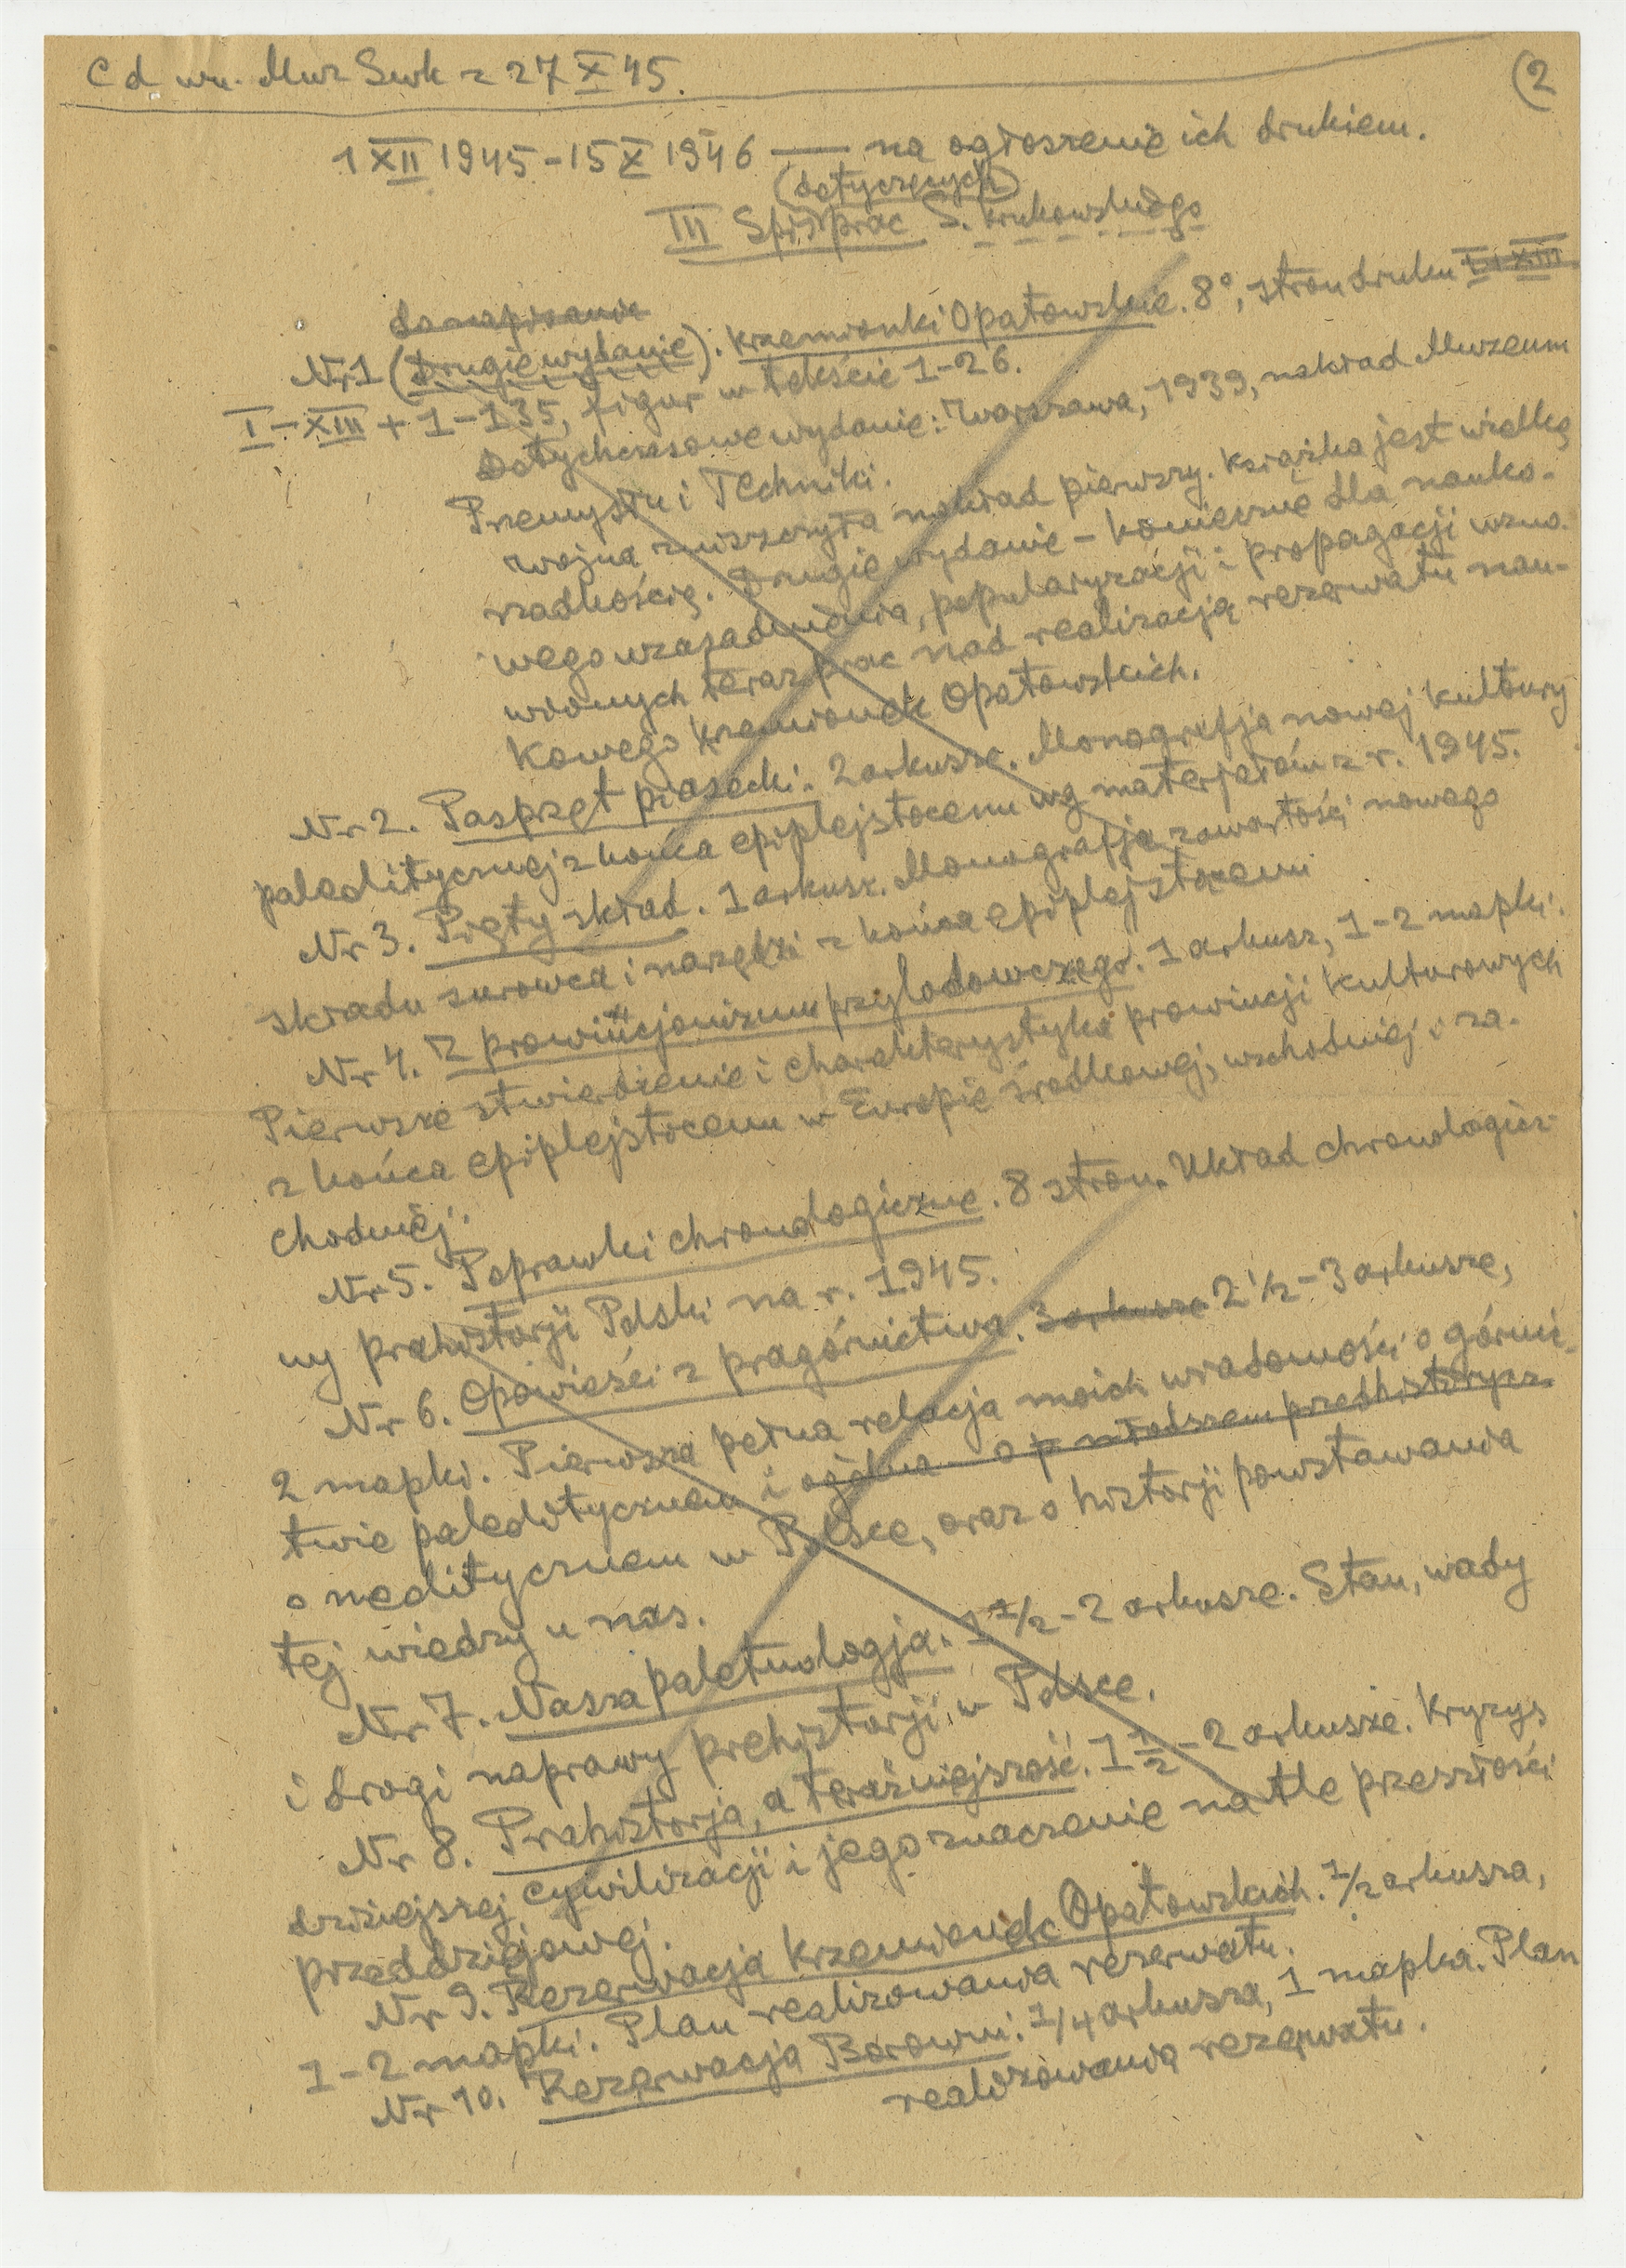 C d um. Muz Swk z 27 X 45.
(2
1 XII 1945 - 15 X 1946 — na ogłoszenie ich drukiem.
(dotyczących)
III Spis prac S. Krukowskiego
do napisania
Nr 1 (Drugie wydanie). Krzemionki Opatowskie. 8°, stron druku I-XIII
I-XIII + 1-135, figur w tekście 1-26.
Dotychczasowe wydanie: Warszawa, 1939, nakład Muzeum
Przemysłu i Techniki.
Wojna zniszczyła nakład pierwszy. Książka jest wielką
rzadkością. Drugie wydanie - konieczne dla nauko-
wego uzasadnienia, popularyzacji i propagacji wzno-
wionych teraz prac nad realizacją rezerwatu nau-
kowego Krzemionek Opatowskich.
Nr 2. Pasprzęt piasecki. 2 arkusze. Monografja nowej kultury
paleolitycznej z końca epiplejstocenu wg materjałów z r. 1945.
Nr 3. Piąty skład. 1 arkusz. Monografja zawartości nowego
składu surowca i narzędzi z końca epiplejstocenu
Nr 4. Z prowincjonizmu przylodowczego. 1 arkusz, 1-2 mapki.
Pierwsze stwierdzenie i charakterystyka prowincji kulturowych
z końca epiplejstocenu w Europie środkowej, wschodniej i za-
chodniej.
Nr 5. Poprawki chronologiczne. 8 stron. Układ chronologicz-
ny prehistorji Polski na r. 1945.
Nr 6. Opowieści z pragórnictwa. 3 arkusze 2 1/2 - 3 arkusze,
2 mapki. Pierwsza pełna relacja moich wiadomości o górni-
twie paleolitycznem i ogólna o p młodszem przedhistorycz.
o neolitycznem w Polsce, oraz o historji powstawania
tej wiedzy u nas.
Nr 7. Nasza paletnologja. 1 1/2 - 2 arkusze. Stan, wady
i drogi naprawy prehistorji w Polsce.
Nr 8. Prahistorja, a teraźniejszość. 1 1/2 - 2 arkusze. Kryzys
dzisiejszej cywilizacji i jego znaczenie na tle przeszłości
przeddziejowej.
Nr 9. Rezerwacja Krzemionek Opatowskich. 1/2 arkusza,
1-2 mapki. Plan realizowania rezerwatu.
Nr 10. Rezerwacja Borowni. 1/4 arkusza, 1 mapka. Plan
realizowania rezerwatu.